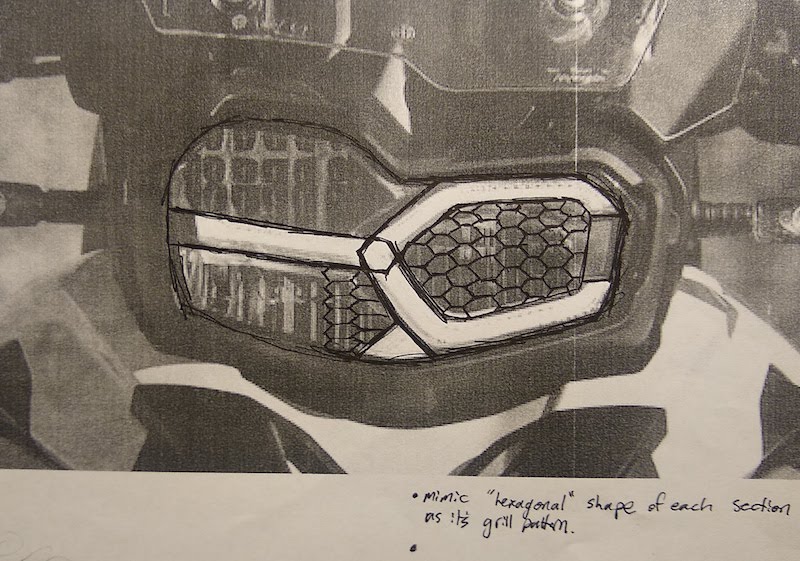 • mimic "hexagonal" shape of each section
as it's grill pattern.
•